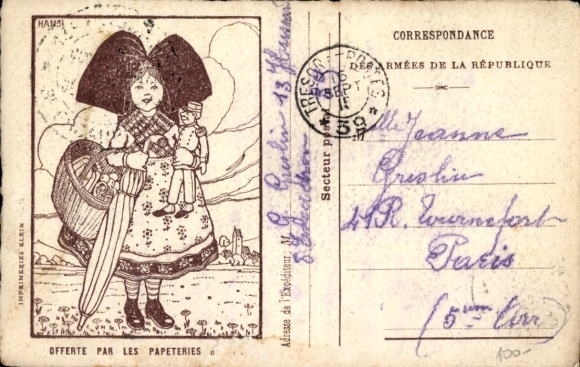 HANSI
IMPRIMERIES KLEIN
OFFERTE PAR LES PAPETERIES
Adresse de l'Expéditeur: M
G Greslin 13
Escadron
Secteur postal
TRESOR ET POSTES
SEPT
15
* 39 *
CORRESPONDANCE
DES ARMÉES DE LA RÉPUBLIQUE
Mlle Jeanne
Greslin
41 R. Tournefort
Paris
(5eme Arr)
100-